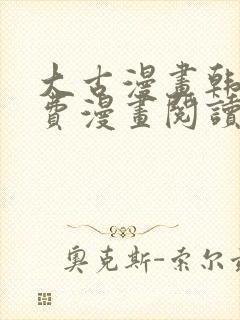 大古漫畫韩
費漫畫閱讀
奥克斯-索尔